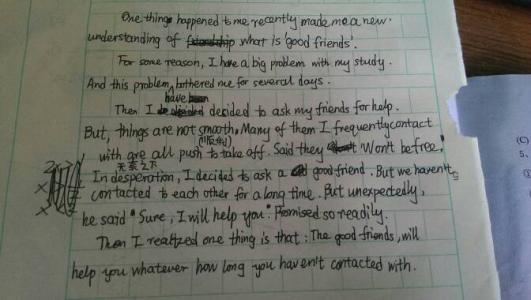 One things happened to me recently made me a new
understanding of what is 'good friends'.
For some reason, I have a big problem with my study.
And this problem, bothered me for several days.
Then I have decided to ask my friends for help.
But, things are not smooth. Many of them I frequently contact
(顺利)
with are all push to take off. Said they Won't be free.
无奈之下
In desperation, I decided to ask a good friend. But we haven't
contacted to each other for a long time. But unexpectedly,
he said "Sure, I will help you". Promised so readily.
Then I realized one thing is that: The good friends, will
help you whatever how long you haven't contacted with.
(C)
5.